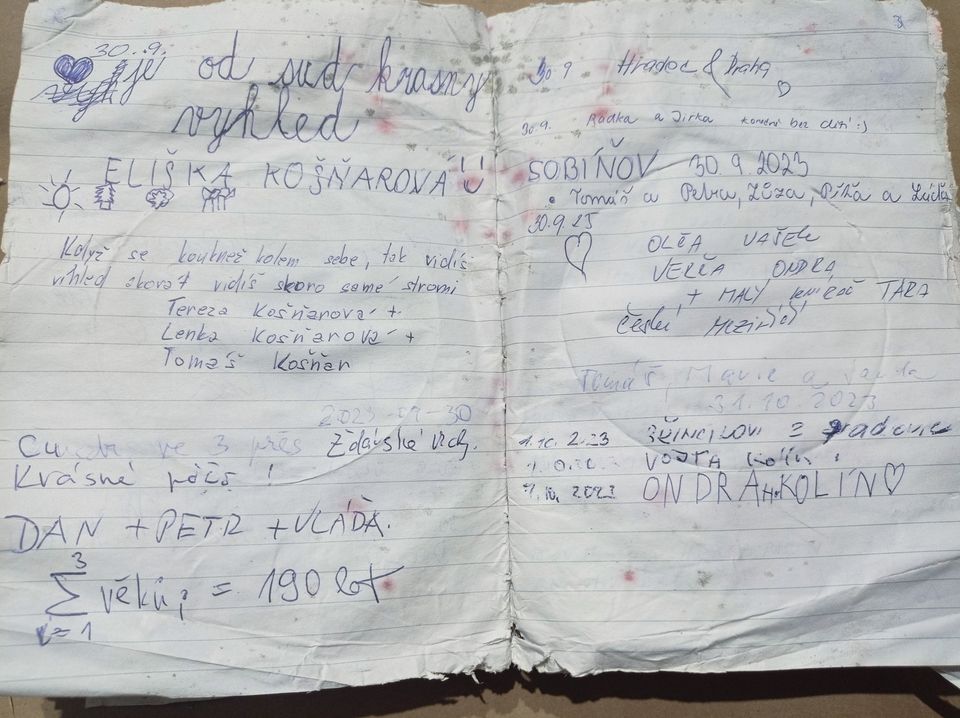 30. 9.
je od sud krasny
vyhled
ELIŠKA KOŠŇAROVÁ
Když se koukneš kolem sebe, tak vidíš
vihled skorat vidíš skoro samé stromi
Tereza Košňarová +
Lenka Košňarová +
Tomáš Košňar
2023-09-30
ve 3 přes Žďárské vrchy.
Krásné počás !
DAN + PETR + VLÁĎA.
3
∑ věků i = 190 let
i=1
30. 9 Hradec & Praha
30. 9. Radka a Jirka konečně bez dětí :)
SOBIŇOV 30. 9. 2023
• Tomáš a Petra, Zůza,
30. 9. 23
OLČA VAŠEK
VERČA ONDRA
+ MALÝ TARA
České Meziříčí
Tomáš, Marie a
31. 10. 2023
1. 10. 2023
VOJTA Kolín
1. 10. 2023 ONDRA KOLÍN